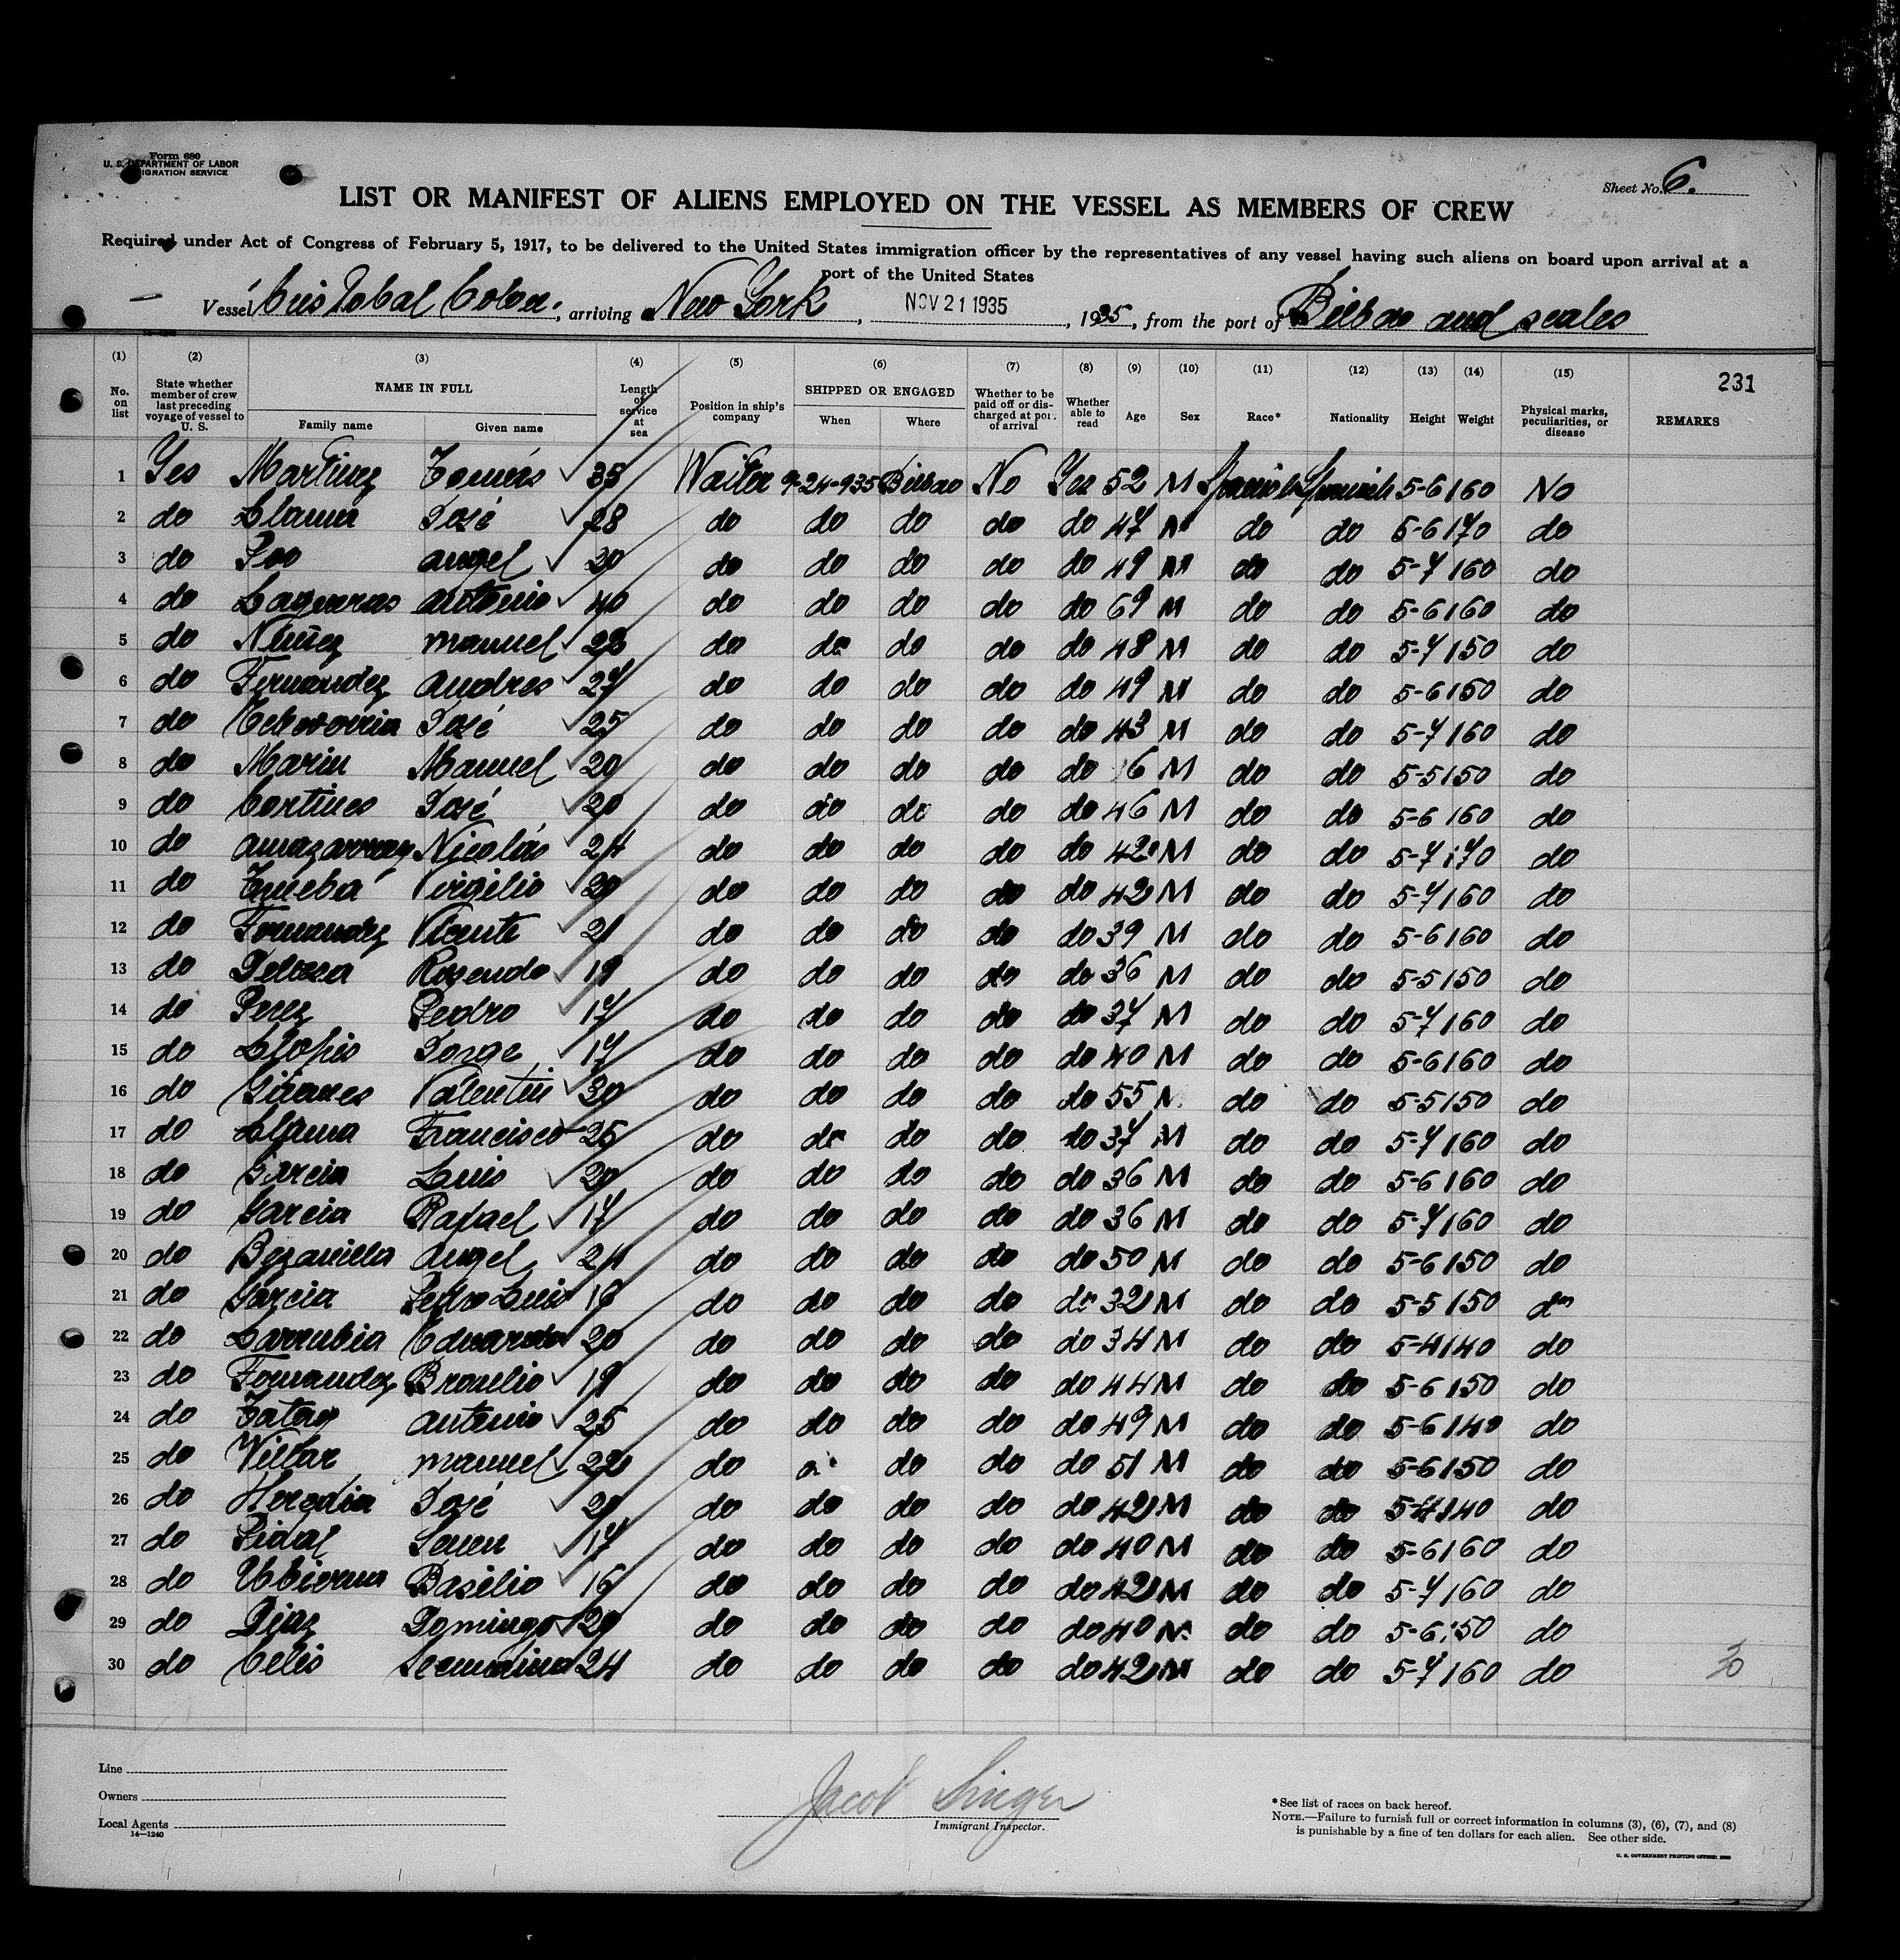 Form 680
U. S. DEPARTMENT OF LABOR
IGRATION SERVICE
Sheet No. 6.
LIST OR MANIFEST OF ALIENS EMPLOYED ON THE VESSEL AS MEMBERS OF CREW
Required under Act of Congress of February 5, 1917, to be delivered to the United States immigration officer by the representatives of any vessel having such aliens on board upon arrival at a
port of the United States
Vessel Cristobal Colon, arriving New York, NOV 21 1935, 1935, from the port of Bilbao and scales
(1) (2) (3) (4) (5) (6) (7) (8) (9) (10) (11) (12) (13) (14) (15)
231
No. on list State whether member of crew last preceding voyage of vessel to U. S. NAME IN FULL Family name Given name Length of service at sea Position in ship's company SHIPPED OR ENGAGED When Where Whether to be paid off or discharged at port of arrival Whether able to read Age Sex Race* Nationality Height Weight Physical marks, peculiarities, or disease REMARKS
1 Yes Martinez Tomás 35 Waiter 9-24-935 Bilbao No Yes 52 M Spanish Spanish 5-6 160 No
2 do Llama José 28 do do do do do 47 M do do 5-6 170 do
3 do Poo Angel 30 do do do do do 49 M do do 5-7 160 do
4 do Antonio 40 do do do do do 69 M do do 5-6 160 do
5 do Nuñez Manuel 28 do do do do do 48 M do do 5-7 150 do
6 do Fernandez Andres 27 do do do do do 49 M do do 5-6 150 do
7 do Echevarria José 25 do do do do do 43 M do do 5-7 160 do
8 do Marin Manuel 20 do do do do do 6 M do do 5-5 150 do
9 do Cortines José 20 do do do do do 46 M do do 5-6 160 do
10 do Amazarray Nicolás 24 do do do do do 42 M do do 5-7 170 do
11 do Trueba Virgilio 20 do do do do do 42 M do do 5-7 160 do
12 do Fernandez Vicente 21 do do do do do 39 M do do 5-6 160 do
13 do Rosendo 19 do do do do do 36 M do do 5-5 150 do
14 do Perez Pedro 17 do do do do do 37 M do do 5-7 160 do
15 do Llopis Jorge 17 do do do do do 40 M do do 5-6 160 do
16 do Valentin 30 do do do do do 55 M do do 5-5 150 do
17 do Llama Francisco 25 do do do do do 37 M do do 5-7 160 do
18 do Garcia Luis 20 do do do do do 36 M do do 5-6 160 do
19 do Garcia Rafael 17 do do do do do 36 M do do 5-7 160 do
20 do Bezanilla Angel 24 do do do do do 50 M do do 5-6 150 do
21 do Garcia Pedro Luis 16 do do do do do 32 M do do 5-5 150 do
22 do Larrubia Eduardo 20 do do do do do 34 M do do 5-4 140 do
23 do Fernandez Braulio 19 do do do do do 44 M do do 5-6 150 do
24 do Antonio 25 do do do do do 49 M do do 5-6 140 do
25 do Villar Manuel 22 do do do do 51 M do do 5-6 150 do
26 do Heredia José 20 do do do do do 42 M do do 5-4 140 do
27 do Pidal 17 do do do do do 40 M do do 5-6 160 do
28 do Ubierna Basilio 16 do do do do do 42 M do do 5-7 160 do
29 do Diaz Domingo 20 do do do do do 40 M do do 5-6 150 do
30 do Celis Secundino 24 do do do do do 42 M do do 5-7 160 do 30
Line
Owners
Local Agents
14—1240
Jacob Singer
Immigrant Inspector.
*See list of races on back hereof.
NOTE.—Failure to furnish full or correct information in columns (3), (6), (7), and (8)
is punishable by a fine of ten dollars for each alien. See other side.
U. S. GOVERNMENT PRINTING OFFICE: